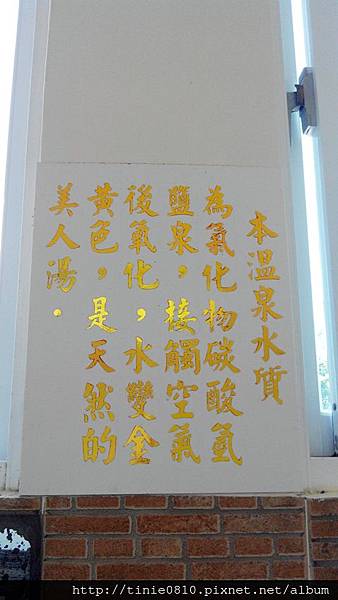 本溫泉水質
為氯化物碳酸氫
鹽泉，接觸空氣
後氧化，水變金
黃色，是天然的
美人湯．
http://tinie0810.pixnet.net/album